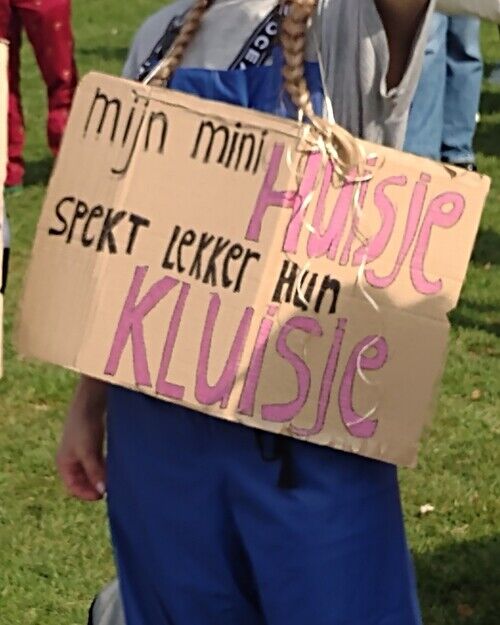 mijn mini
Huisje
SPEKT LEKKER HUN
KLUISJE